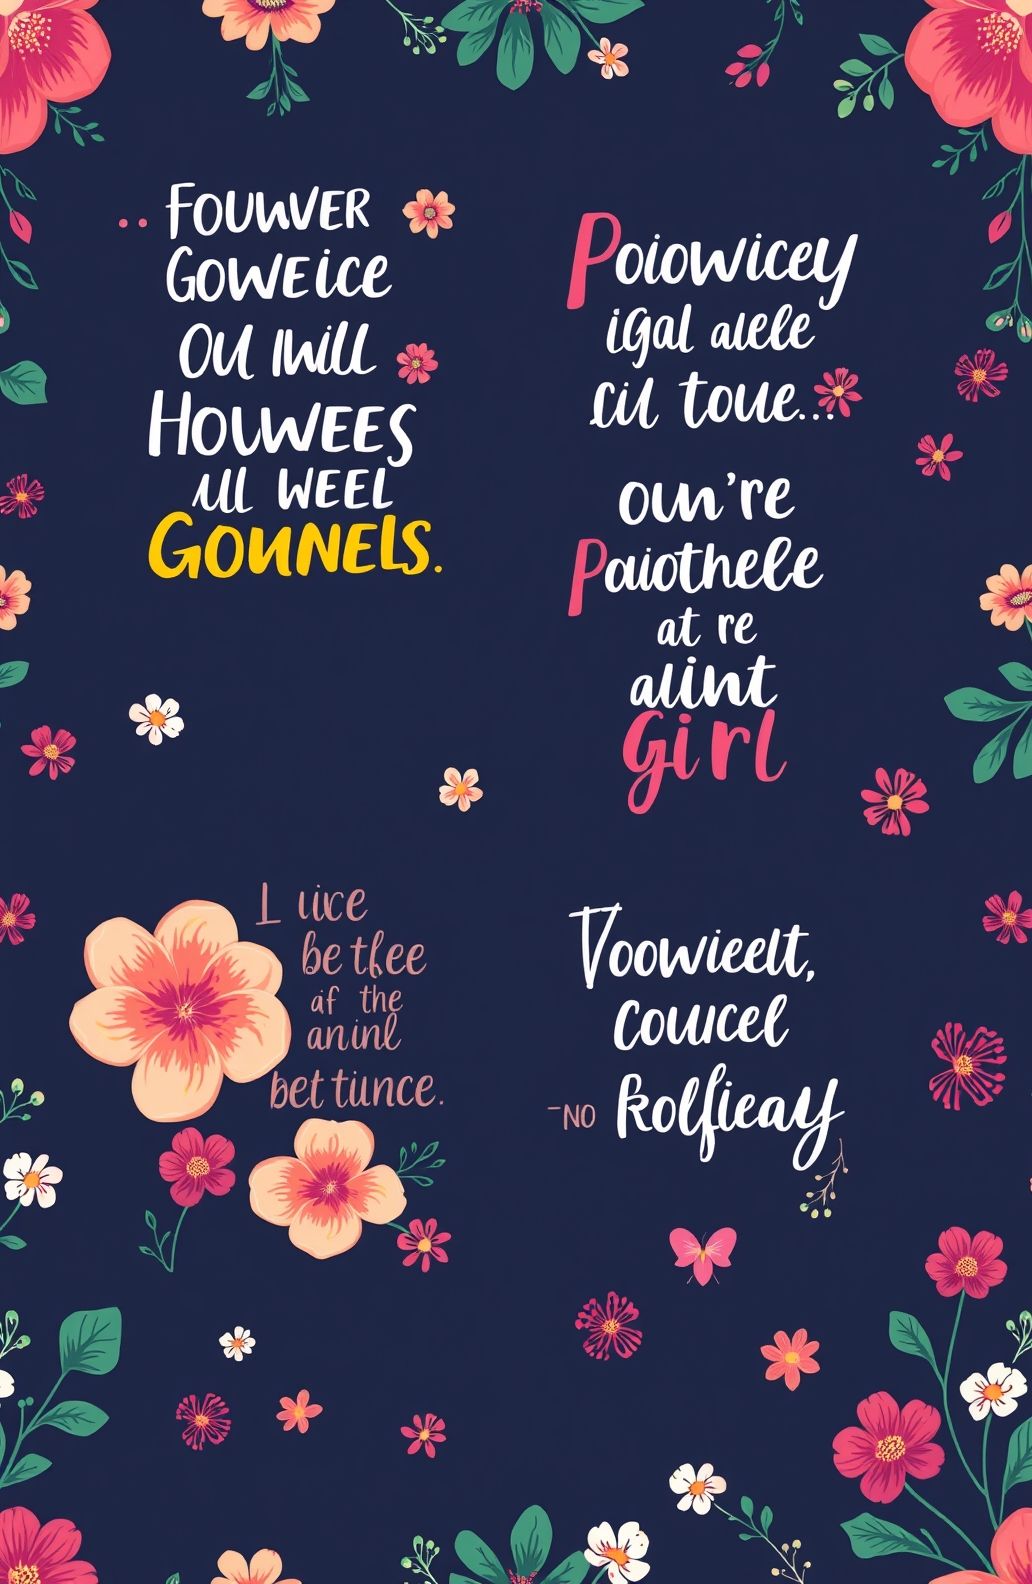 FOUWVER
GOWEICE
OU IWILL
HOUWEES
ULL WEEL
GOUNELS.
Poiowicey
iGal alele
cil toue...
oun're
Paiothele
at re
alint
Girl
I uice
be thee
af the
aninl
bet tunce.
Toowieelt,
Coucel
-NO Rolfieay